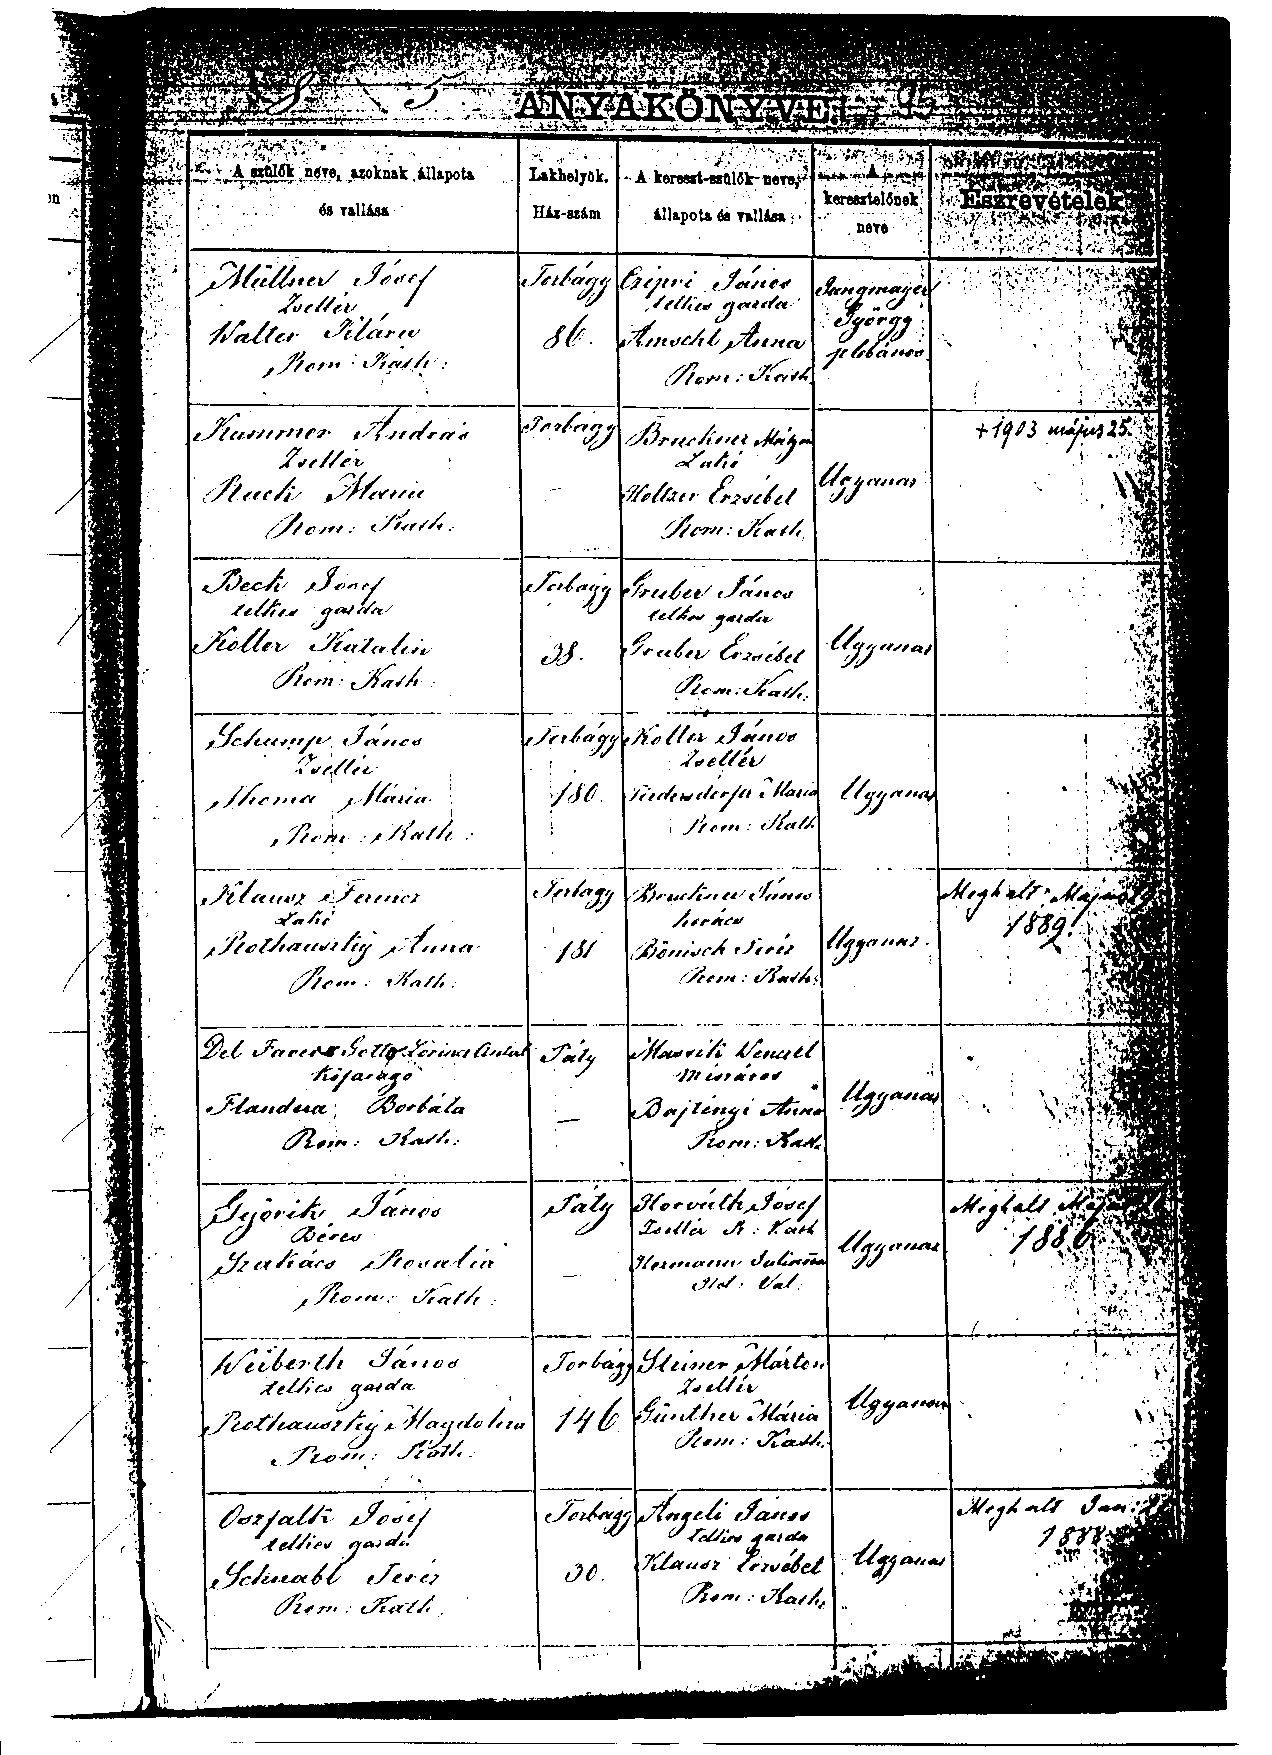 18 5 ANYAKÖNYVE 95
A szülők neve, azoknak állapota
és vallása
Lakhelyök.
Ház-szám
A kereszt-szülők neve,
állapota és vallása
A
keresztelőnek
neve
Észrevételek
Müllner Jósef
Zsellér
Walter Hilária
Rom: Kath:
Torbágy
86.
Czipri János
telkes garda
Amschl Anna
Rom: Kath
Jungmayer
György
plébános
Kummer András
Zsellér
Ruck Maria
Rom: Kath:
Torbágy
—
Bruckner Mátyás
Lakó
Holtzer Erzsébet
Rom: Kath.
Ugyanaz
+1903 május 25.
Beck Jósef
telkes garda
Koller Katalin
Rom: Kath:
Torbágy
38.
Gruber János
telkes garda
Gruber Erzsébet
Rom: Kath:
Ugyanaz
Schump János
Zsellér
Thoma Mária
Rom: Kath:
Torbágy
180.
Koller János
Zsellér
Maria
Rom: Kath
Ugyanaz
Klausz Ferencz
Lakó
Rothauszky Anna
Rom: Kath:
Torbagy
181
Bruckner János
kovács
Bönisch Teréz
Rom: Kath:
Ugyanaz
Meghalt: Május
1889.
Del Lörincz Antal
Kőfaragó
Flandera Borbála
Rom: Kath:
Páty
—
Massik Venczel
Mészáros
Bajtényi Anna
Rom: Kath.
Ugyanaz
Györik János
Béres
Szakács Rosalia
Rom: Kath:
Páty
—
Horváth Jósef
Zsellér R: Kath
Hermann Julianna
Hel: Val.
Ugyanaz
Meghalt Május
1886
Weiberth János
telkes garda
Rothauszky Magdolna
Rom: Kath:
Torbágy
146
Steiner Márton
Zsellér
Günther Mária
Rom: Kath.
Ugyanaz
Oszfalk Jósef
telkes garda
Schnabl Teréz
Rom: Kath.
Torbágy
30.
Angeli János
telkes garda
Klausz Erzsébet
Rom: Kath.
Ugyanaz
Meghalt Jan:
1888